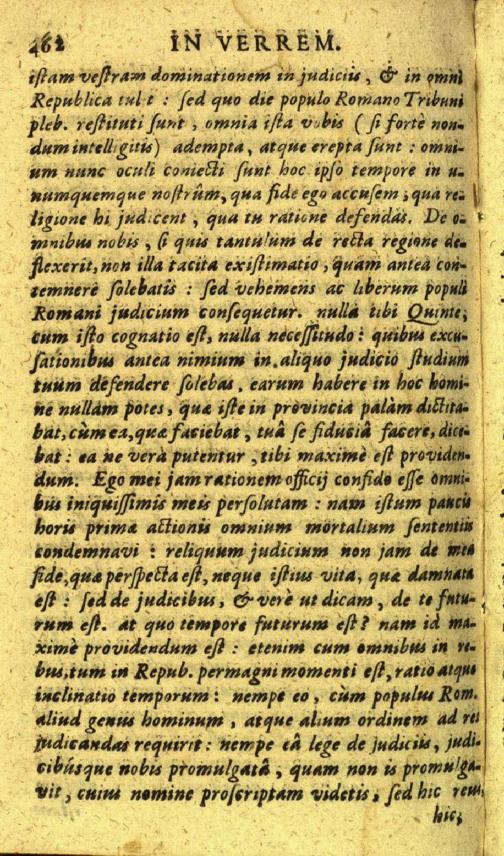 462 IN VERREM.
istam vestram dominationem in judiciis, & in omni
Republica tulit : sed quo die populo Romano Tribuni
pleb. restituti sunt, omnia ista vobis ( si fortè non-
dum intelligitis) adempta, atque erepta sunt : omni-
um nunc oculi coniecti sunt hoc ipso tempore in u-
numquemque nostrûm, qua fide ego accusem ; qua re-
ligione hi judicent, qua tu ratione defendas. De o-
mnibus nobis, si quis tantulum de recta regione de-
flexerit, non illa tacita existimatio, quam anteà con-
temnere solebatis : sed vehemens ac liberum populi
Romani judicium consequetur. nulla tibi Quinte,
cum isto cognatio est, nulla necessitudo : quibus excu-
sationibus antea nimium in aliquo judicio studium
tuum defendere solebas, earum habere in hoc homi-
ne nullam potes, quæ iste in provincia palàm dictita-
bat, cùm ea, quæ faciebat, tuâ se fiduciâ facere, dice-
bat : ea ne vera putentur, tibi maximè est providen-
dum. Ego mei jam rationem officij confido esse omni-
bus iniquissimis meis persolutam : nam istum paucis
horis primæ actionis omnium mortalium sententiis
condemnavi : reliquum judicium non jam de mea
fide, quæ perspecta est, neque istius vita, quæ damnata
est : sed de judicibus, & verè ut dicam, de te futu-
rum est. at quo tempore futurum est? nam id ma-
ximè providendum est : etenim cum omnibus in re-
bus, tum in Repub. permagni momenti est, ratio atque
inclinatio temporum : nempe eo, cùm populus Rom.
aliud genus hominum, atque alium ordinem ad res
judicandas requirit : nempe eâ lege de judiciis, judi-
cibúsque nobis promulgatâ, quam non is promulga-
vit, cuius nomine proscriptam videtis, sed hic reus,
hic;